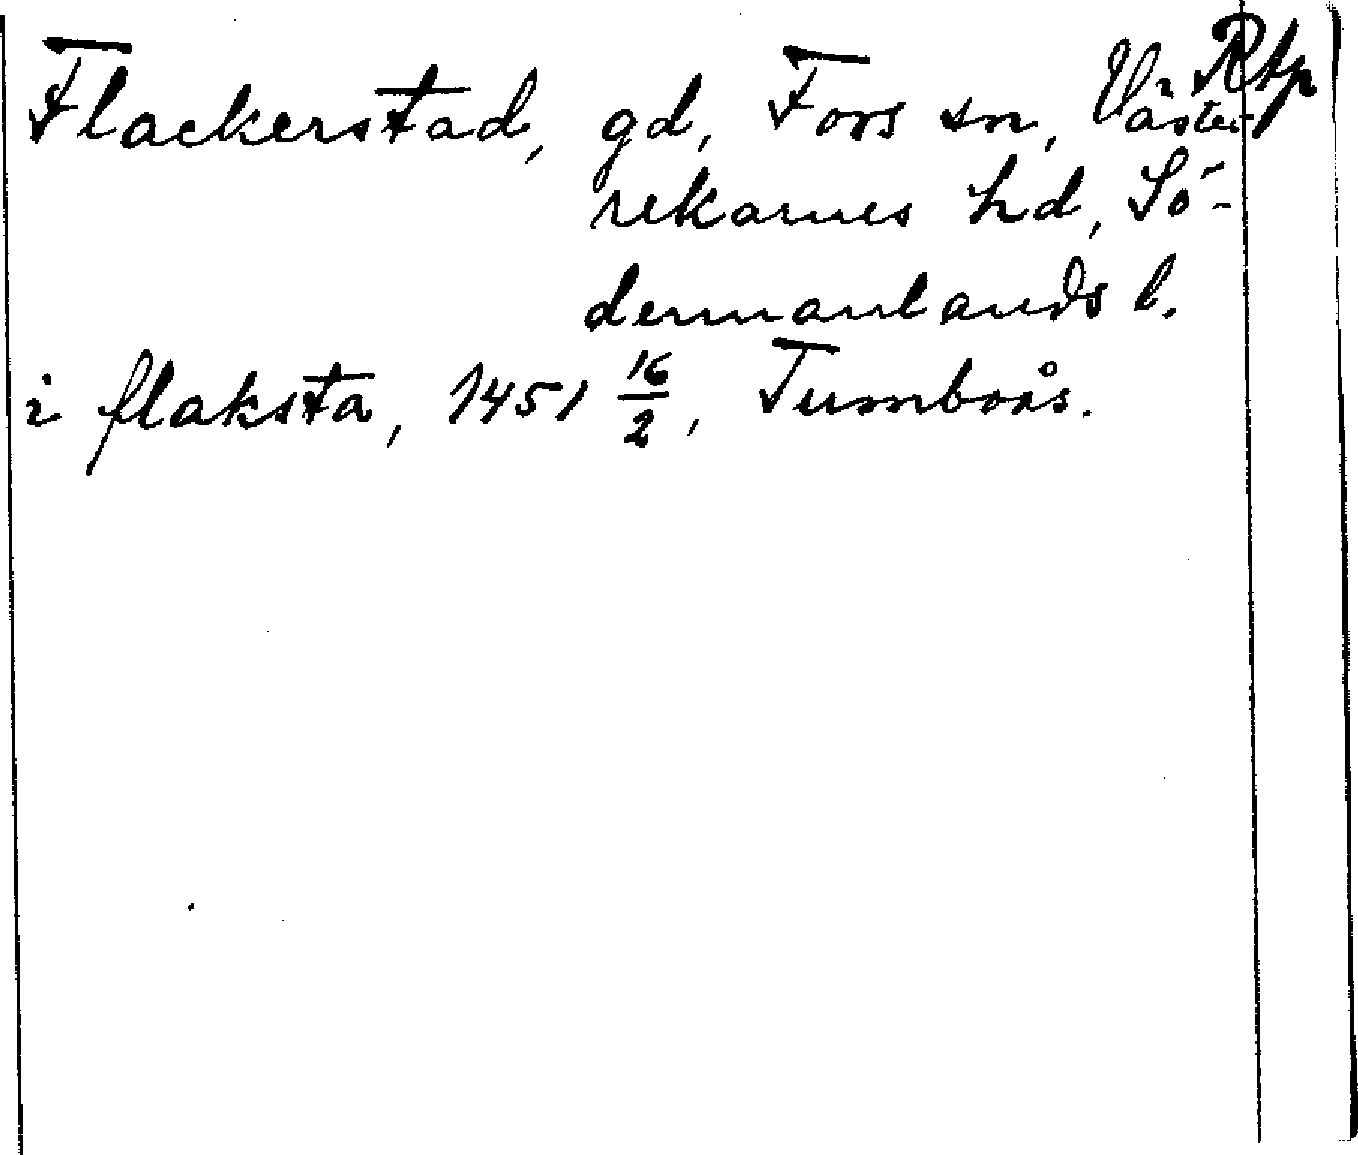 Rtp
Flackerstad, gd, Fors sn, Väster-
rekarnes hd, Sö-
dermanlands l.
i flaksta, 1451 16/2, Tumboås.